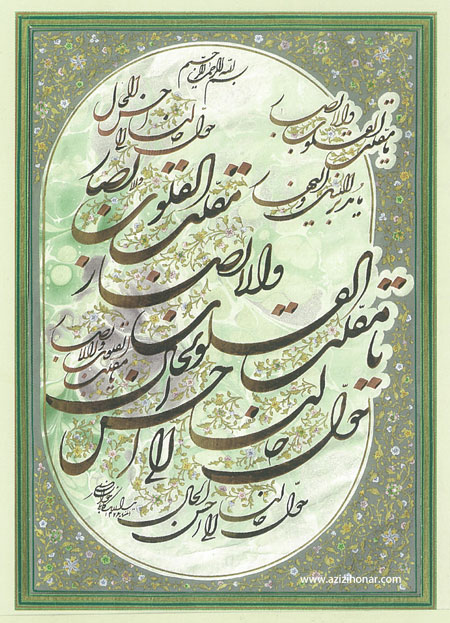 بسم الله الرحمن الرحیم
یا مقلب القلوب والابصار
یا مدبر اللیل والنهار
حول حالنا الی احسن الحال
مقلب القلوب والابصار
یا مقلب القلوب والابصار
یا مقلب القلوب والابصار
حول حالنا الی احسن الحال
حول حالنا الی احسن الحال
www.azizihonar.com